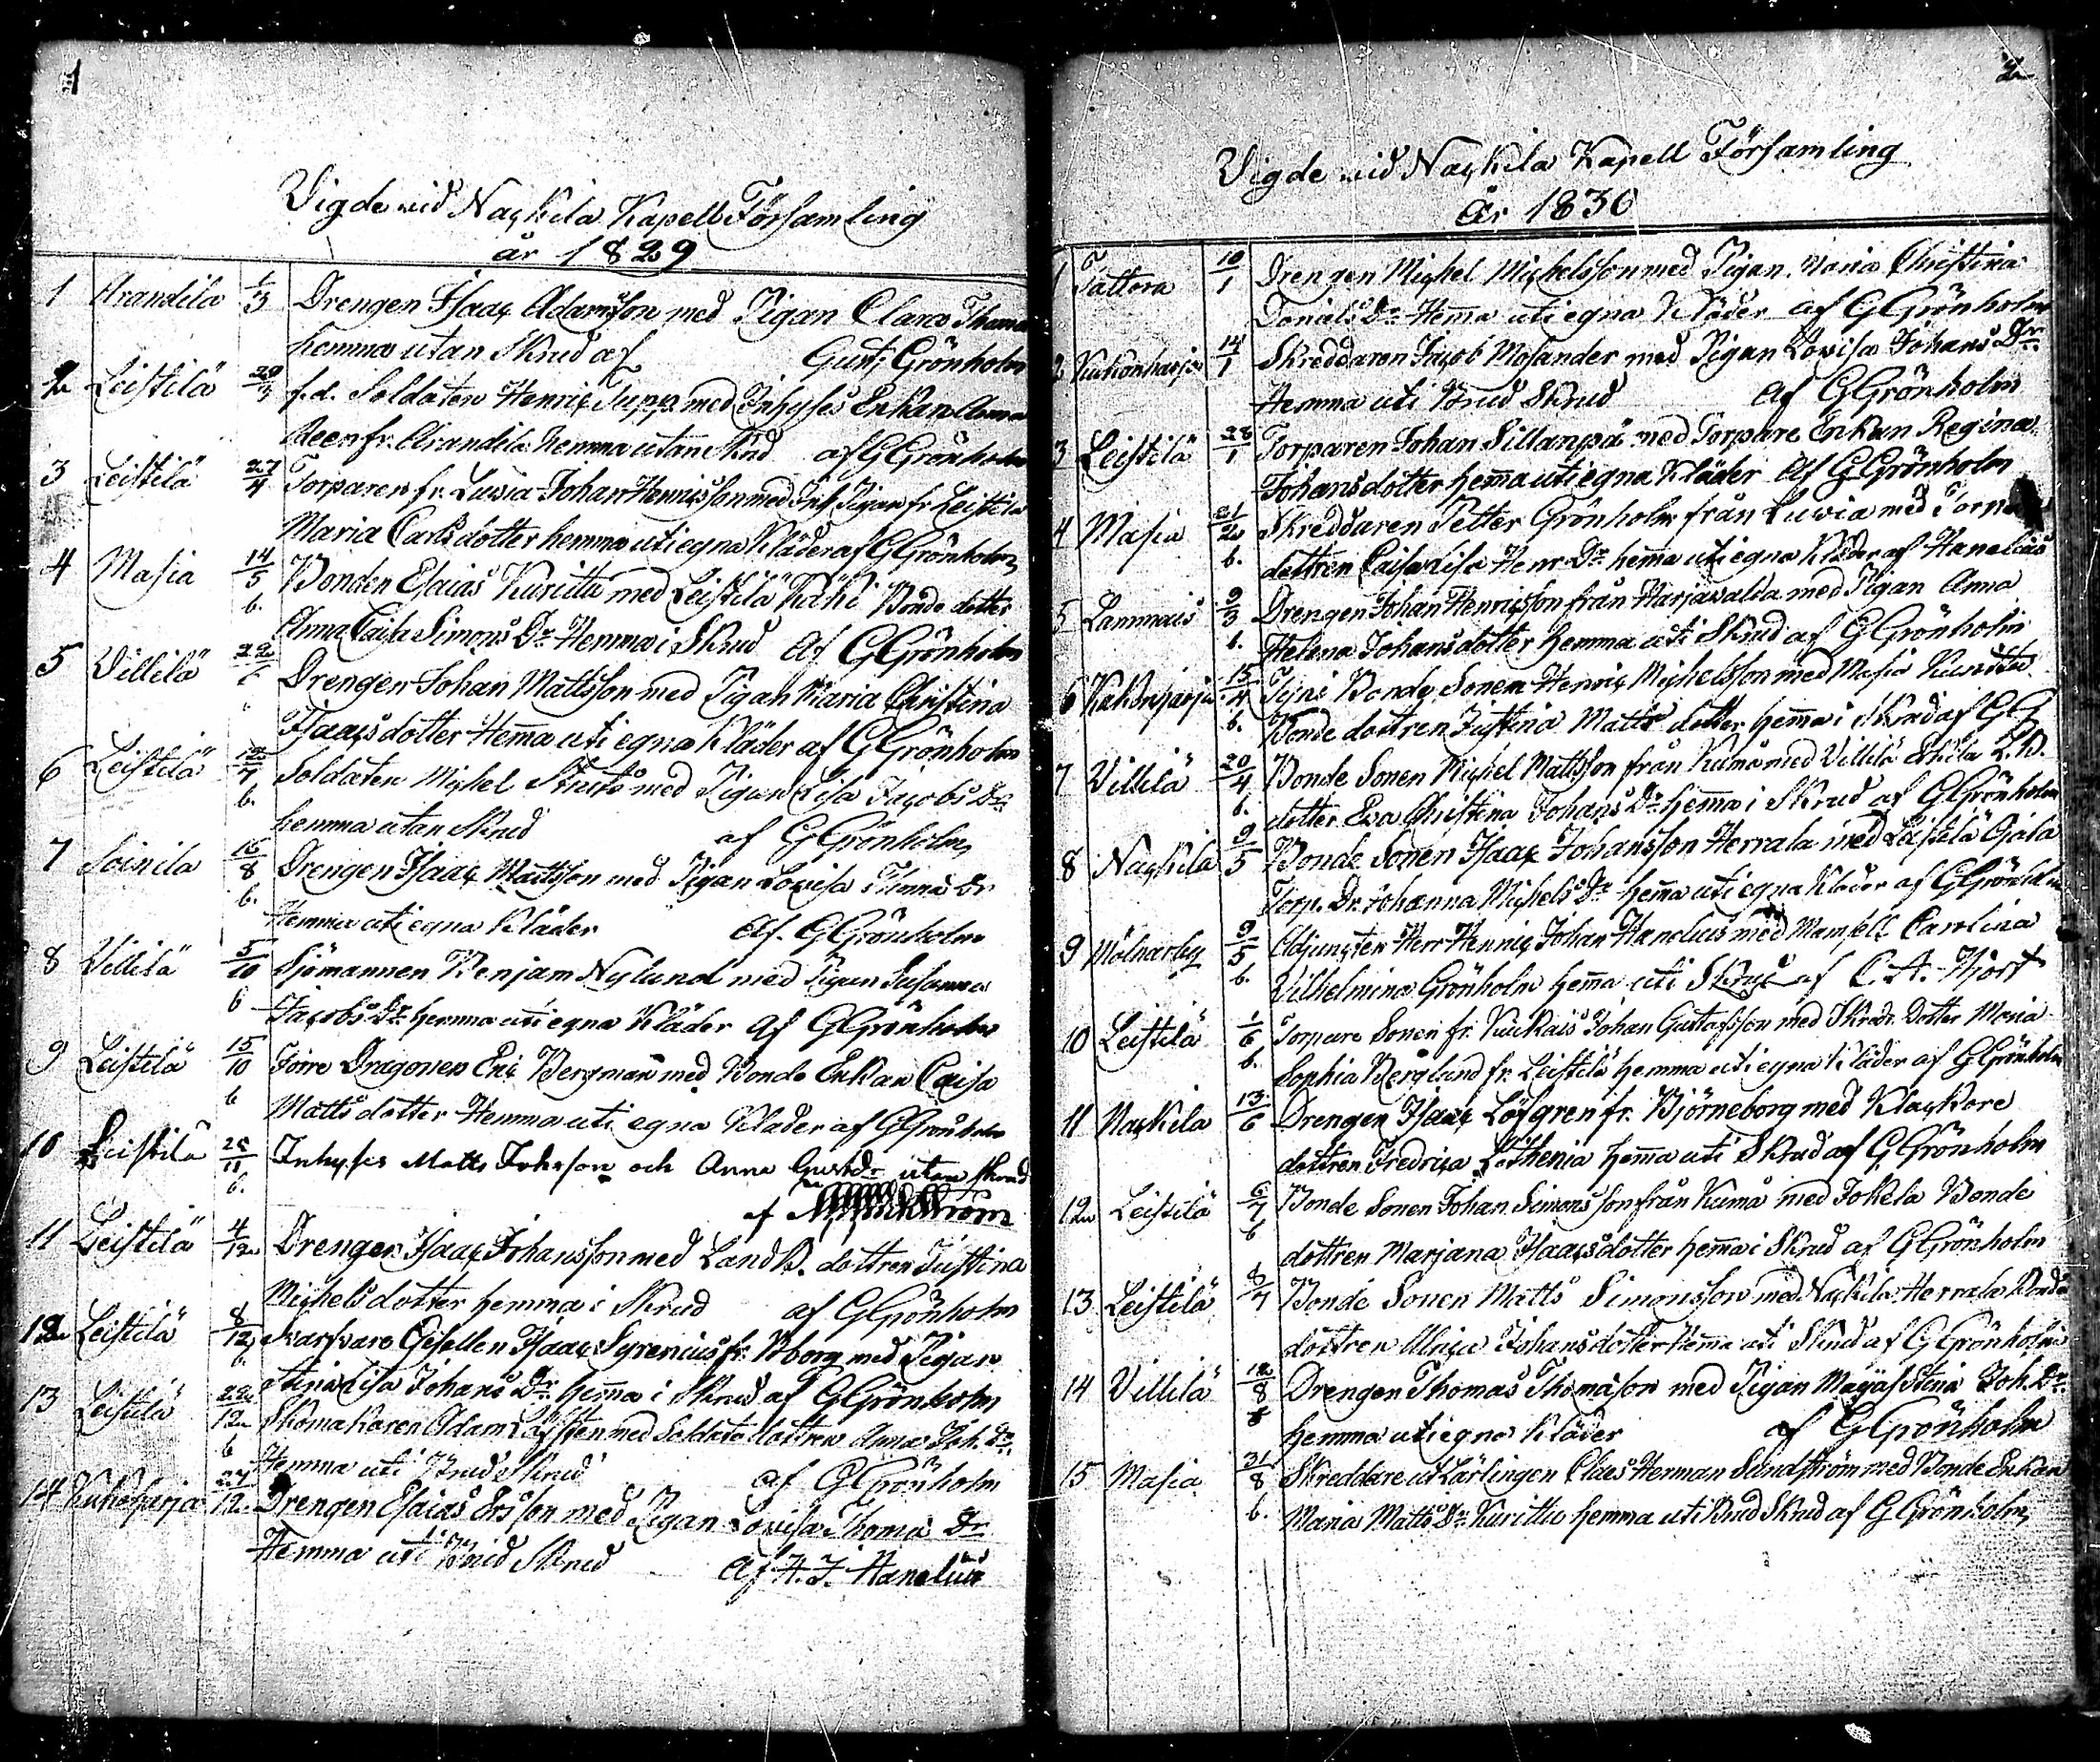 1
Vigde vid Nackila Kapell Församling
år 1829
1 Arandila 1/3 Drengen Isaac Adamsson med Pigan Clara Thoma
hemma utan Skrud af Gust. Grönholm
2 Leistilä 29/3 f.d. Soldaten Henric Supp med Inhyses Enkan Anna
fr. Arandila hemma utan Skrud af G Grönholm
3 Leistilä 27/4 Torparen fr. Luvia Johan Henricsson med Inh. Pigan fr Leistilä
Maria Carlsdotter hemma uti egna Kläder af G Grönholm
4 Masia 14/5 Bonden Esaias Kurittu med Leistilä Käki Bonde dotter
b. Anna Caisa Simons Dr Hemma i Skrud af G Grönholm
5 Villilä 22/6 Drengen Johan Mattsson med Pigan Maria Christina
Isaacsdotter Hemma uti egna Kläder af G Grönholm
6 Leistilä 12/7 Soldaten Michel med Pigan Lisa Jacobs Dr
b. hemma utan Skrud af G Grönholm
7 Soinila 16/8 Drengen Isaac Mattsson med Pigan Lovisa Thoma Dr
b. Hemma uti egna Kläder af G Grönholm
8 Villilä 5/10 Sjömannen Benjam Nylund med Pigan Susanna
b Jacobs Dr hemma uti egna Kläder af G Grönholm
9 Leistilä 15/10 Förre Dragonen Eric Bergman med Bonde Enkan Caisa
b Mattsdotter Hemma uti egna Kläder af G Grönholm
10 Leistilä 25/11 Inhyses Matts Johnson och Anna Gust.dr utan skrud
b. af
11 Leistilä 4/12 Drengen Isaac Johansson med Landb. dottren Justina
Michelsdotter hemma i Skrud af G Grönholm
12 Leistilä 8/12 Garfvare Gesellen Isaac Syrenius fr. Bborg med Pigan
b. Stina Lisa Johans Dr hemma i Skrud af G Grönholm
13 Leistilä 22/12 Skomakaren Adam med Soldats dottren Anna Joh. Dr
b Hemma uti Brud Skrud af G Grönholm
14 Kukoharja 27/12 Drengen Esaias Ersson med Pigan Lovisa Thoma Dr
Hemma uti Brud Skrud af H. J. Hanelius
2
Vigde vid Nackila Kapell Församling
år 1830
1 Tattora 10/1 Drengen Michel Michelsson med Pigan Maria Christina
Daniels Dr Hemma uti egna Kläder af G Grönholm
2 Kukonharja 14/1 Skreddaren Jacob Mosander med Pigan Lovisa Johans Dr
Hemma uti Brud Skrud af G Grönholm
3 Leistilä 28/1 Torparen Johan Sillanpä med Torpare Enkan Regina
Johansdotter hemma uti egna Kläder af G Grönholm
4 Masia 21/2 Skreddaren Petter Grönholm från Luvia med Torpa
b. dottren Caisa Lisa Henr Dr hemma uti egna Kläder af Hanelius
5 Lammais 9/3 Drengen Johan Henricsson från Harjavalta med Pigan Anna
b. Helena Johansdotter hemma uti Skrud af G Grönholm
6 Kukonharja 15/4 Tyni Bonde Sonen Henric Michelsson med Masia Kurittu
b. Bonde dottren Justina Matts dotter hemma i Skrud af G G
7 Villilä 20/4 Bonde Sonen Michel Mattsson från Kumo med Villilä Eskila L.B.
b. dotter Eva Christina Johans Dr hemma i Skrud af G Grönholm
8 Nackila 9/5 Bonde Sonen Isaac Johansson Herrala med Leistilä Ojala
Torp. Dr Johanna Michels Dr hemma uti egna Kläder af G Grönholm
9 Molnarby 9/5 Adjuncten Herr Henric Johan Hanelius med Mamsell Carolina
b. Vilhelmina Grönholm hemma uti Skrud af C. A. Hjort
10 Leistilä 1/6 Torpare Sonen fr. Kiukais Johan Gustafsson med Skredr. Dotter Maria
b. Sophia Berglund fr. Leistilä hemma uti egna Kläder af G Grönholm
11 Nackila 13/6 Drengen Isaac Löfgren fr. Björneborg med Klockare
dottren Fredrica Lothenia hemma uti Skrud af G Grönholm
12 Leistilä 6/7 Bonde Sonen Johan Simonsson från Kumå med Jokela Bonde
b dottren Marjana Isaacsdotter hemma i Skrud af G Grönholm
13 Leistilä 8/7 Bonde Sonen Matts Simonsson med Nackila Herrala Bonde
dottren Ulrica Johansdotter hemma uti Skrud af G Grönholm
14 Villilä 12/8 Drengen Thomas Thomason med Pigan Majastina Joh. Dr
b hemma uti egna Kläder af G Grönholm
15 Masia 31/8 Skreddare Lärlingen Claes Herman Sundström med Bonde Enkan
b. Maria Matts Dr Kurittu hemma uti Brud Skrud af G Grönholm